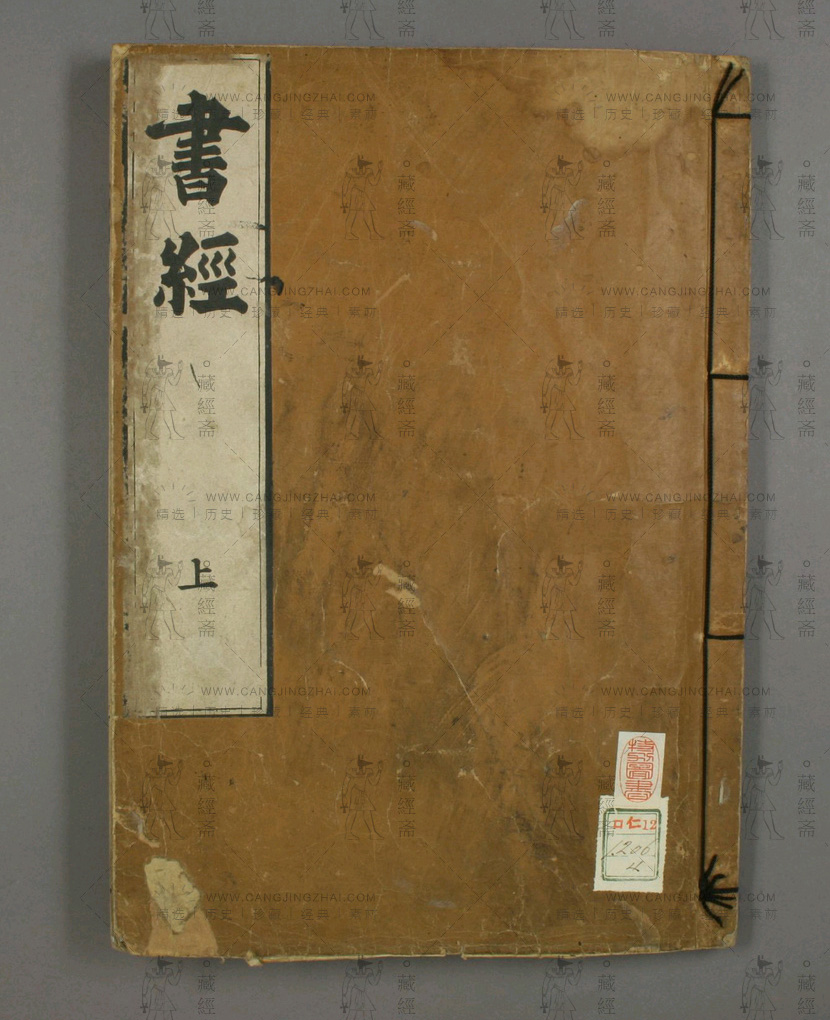 書經
上
特別圖書
口仁12
1200
4
WWW.CANGJINGZHAI.COM
精选 | 历史 | 珍藏 | 经典 | 素材
藏經斋